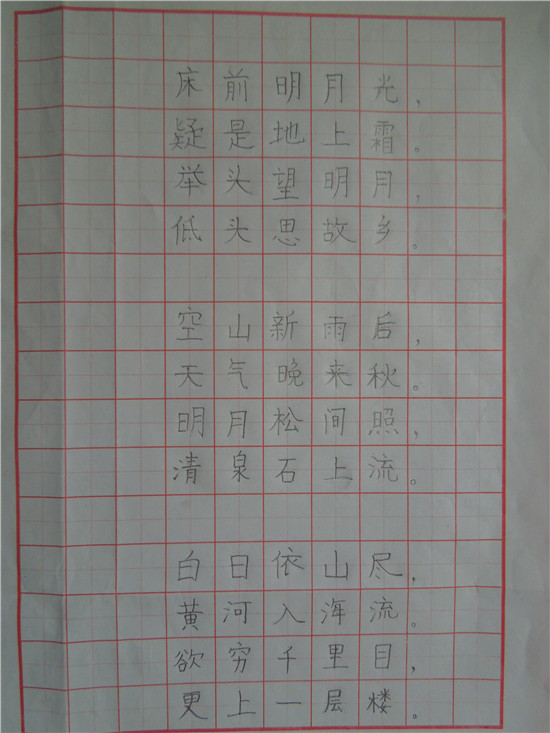 床前明月光，
疑是地上霜。
举头望明月，
低头思故乡。
空山新雨后，
天气晚来秋。
明月松间照，
清泉石上流。
白日依山尽，
黄河入海流。
欲穷千里目，
更上一层楼。